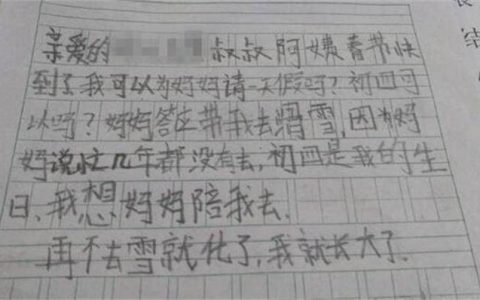 亲爱的 叔叔阿姨春节快
到了我可以为妈妈请一天假吗?初四可
以吗?妈妈答应带我去滑雪,因为妈
妈说忙几年都没有去,初四是我的生
日、我想妈妈陪我去.
再不去雪就化了,我就长大了.